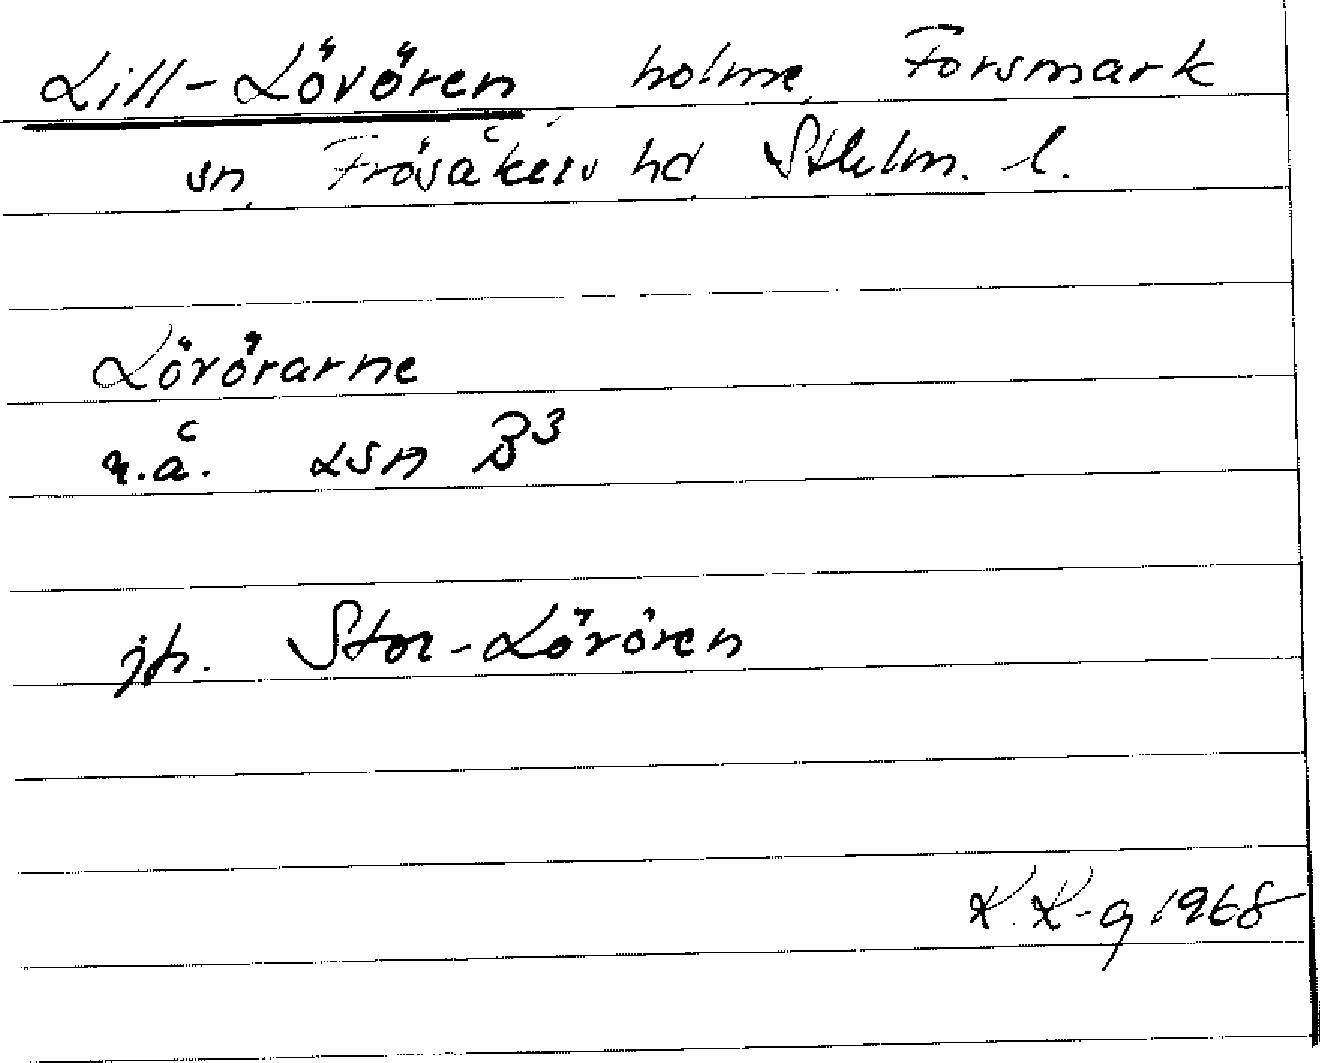 Lill-Lövören, holme, Forsmark
sn, Frösåkers hd, Sthlm. l.
Lövörarne
n.å. LSA B3
jfr. Stor-Lövören
K. K-g 1968